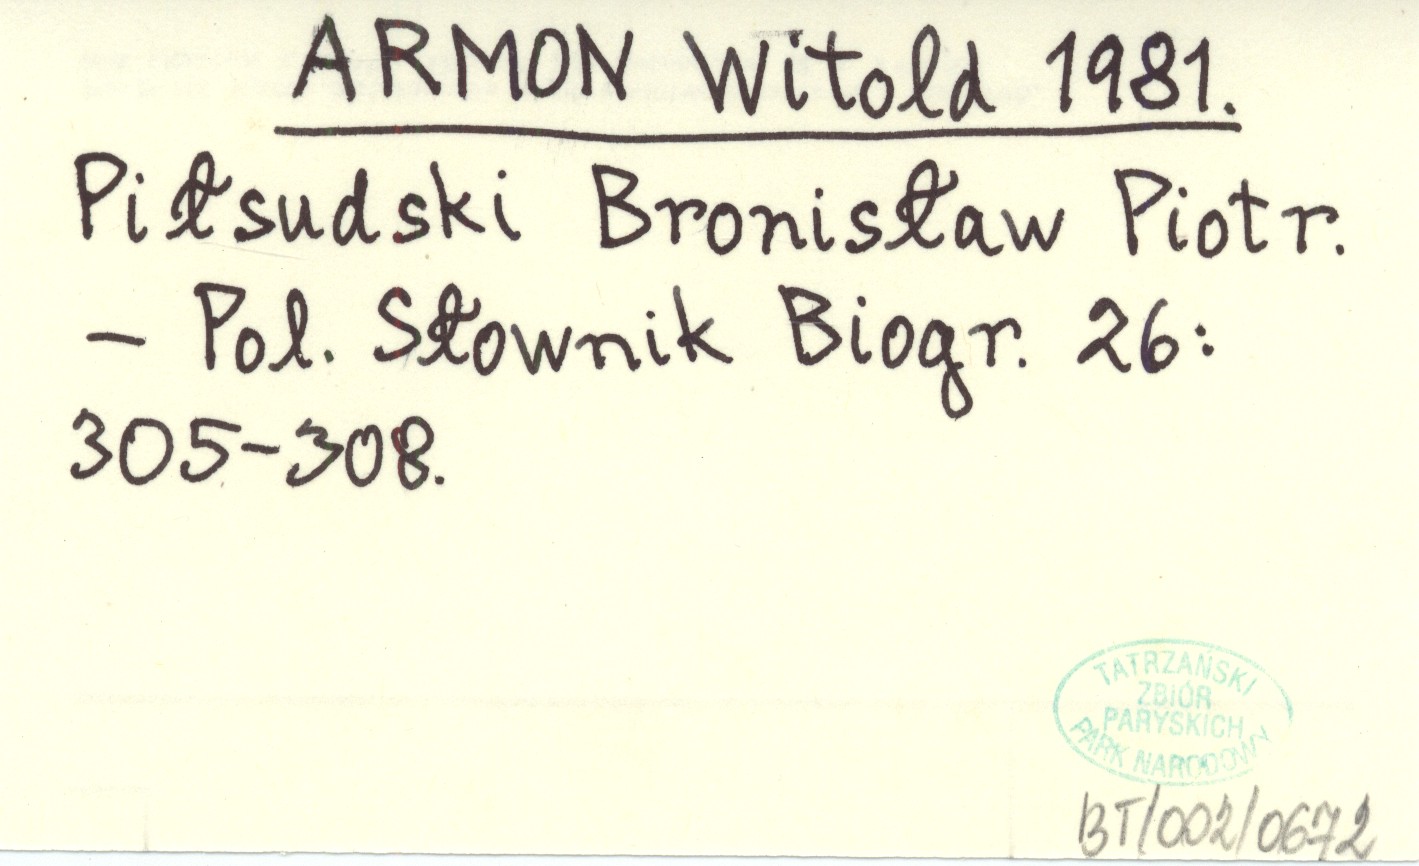 ARMON Witold 1981.
Piłsudski Bronisław Piotr.
– Pol. Słownik Biogr. 26:
305-308.
TATRZAŃSKI
ZBIÓR
PARYSKICH
PARK NARODOWY
BT/002/0672